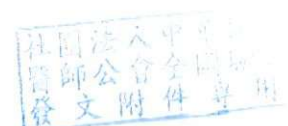 社團法人中
醫師公會全國
發文附件專用